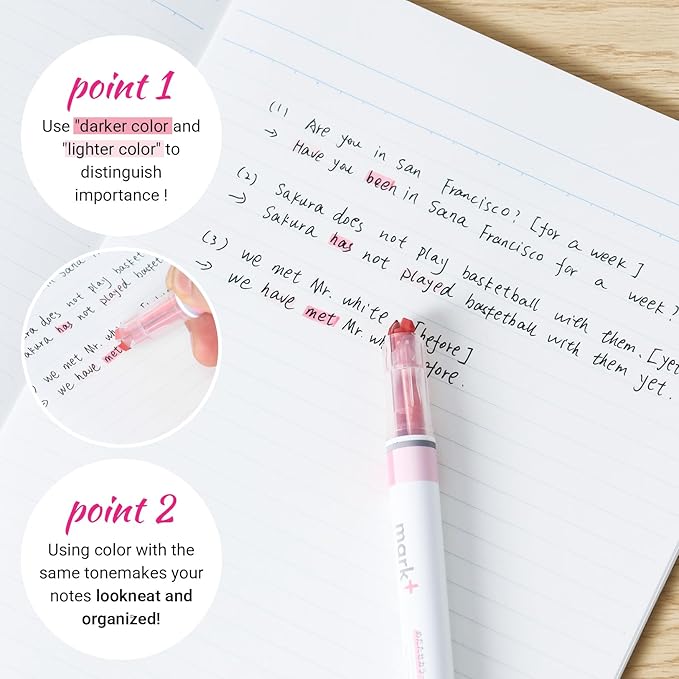 point 1
Use "darker color and
"lighter color" to
distinguish
importance !
(1) Are you in San Francisco? [for a week]
→ Have you been in Sana Francisco for a week?
(2) Sakura does not play basketball with them. [yet
→ Sakura has not played basketball with them yet.
(3) we met Mr. white [before]
→ we have met Mr. whi fore.
sana
ra does not play basket
akura has not played basket
we met Mr. wh
→ we have met
point 2
Using color with the
same tonemakes your
notes lookneat and
organized!
mark+